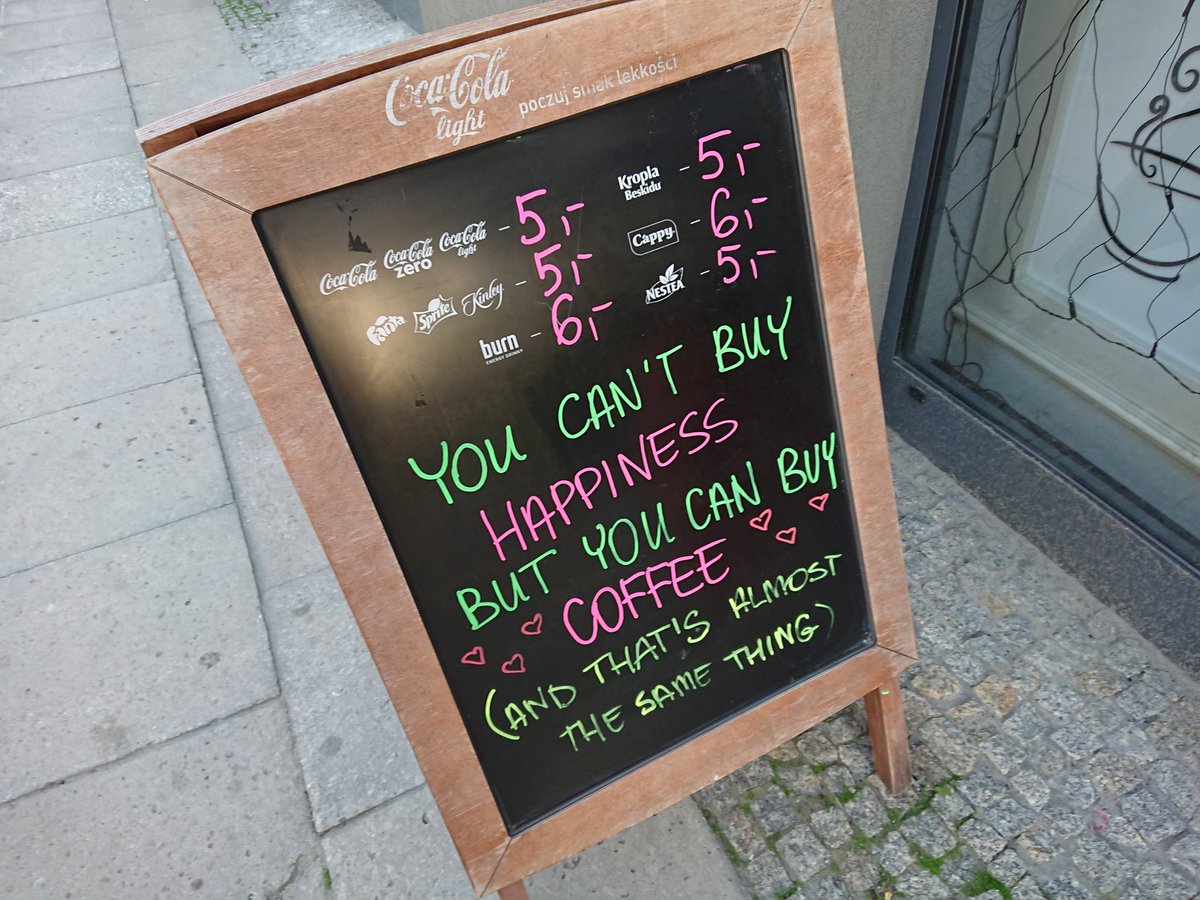 Coca-Cola light poczuj smak lekkości
Coca-Cola Coca-Cola zero Coca-Cola light - 5,-
Fanta Sprite Kinley - 5,-
burn ENERGY DRINK - 6,-
Kropla Beskidu - 5,-
Cappy - 6,-
NESTEA - 5,-
YOU CAN'T BUY
HAPPINESS
BUT YOU CAN BUY
COFFEE
(AND THAT'S ALMOST
THE SAME THING)